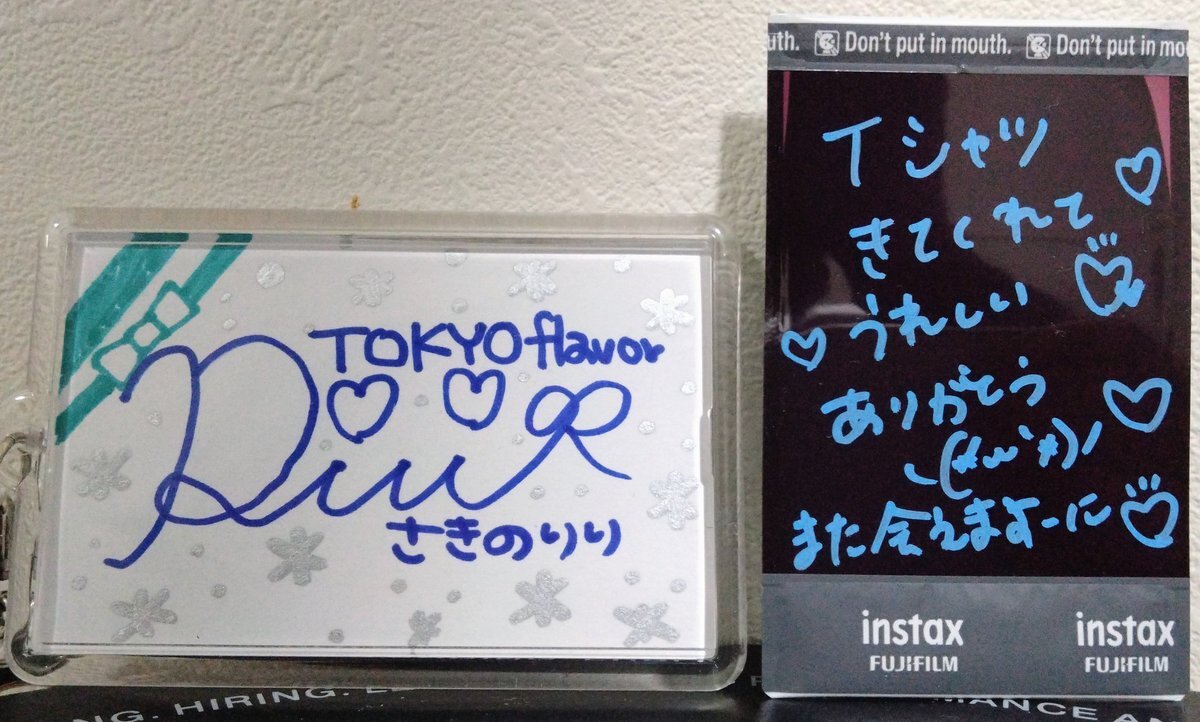 TOKYO flavor
さきのりり
uth. Don't put in mouth. Don't put in mou
Tシャツ
きてくれて
うれしい
ありがとう
また会えますよーに
instax instax
FUJIFILM FUJIFILM
NG. HIRING.
MANCE A